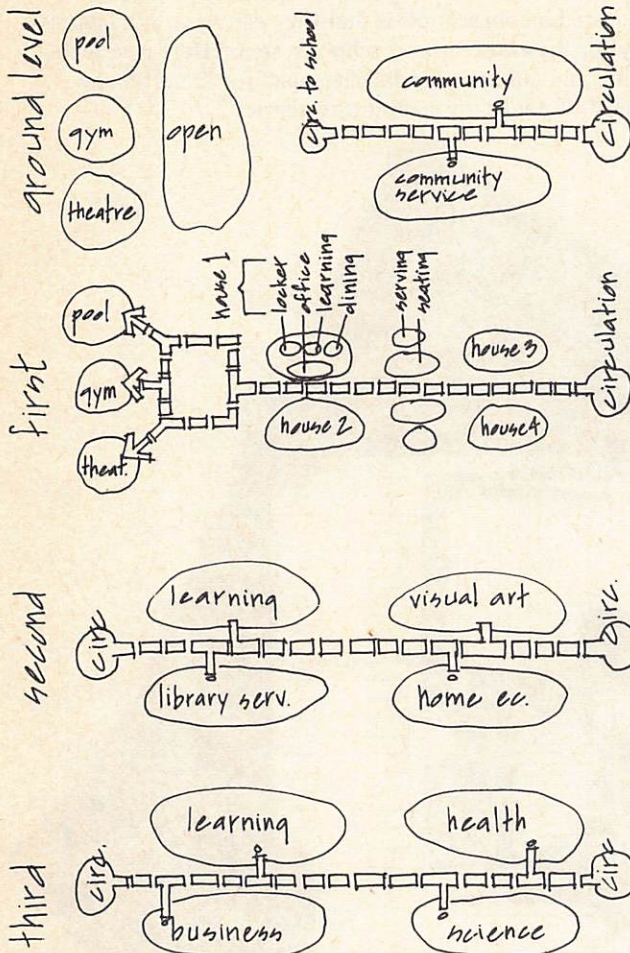 ground level
pool
gym
theatre
open
circ. to school
community
community
service
circulation
first
pool
gym
theat.
house 1
locker
office
learning
dining
house 2
serving
seating
house 3
house 4
circulation
second
circ
learning
library serv.
visual art
home ec.
circ.
third
circ.
learning
business
health
science
circ